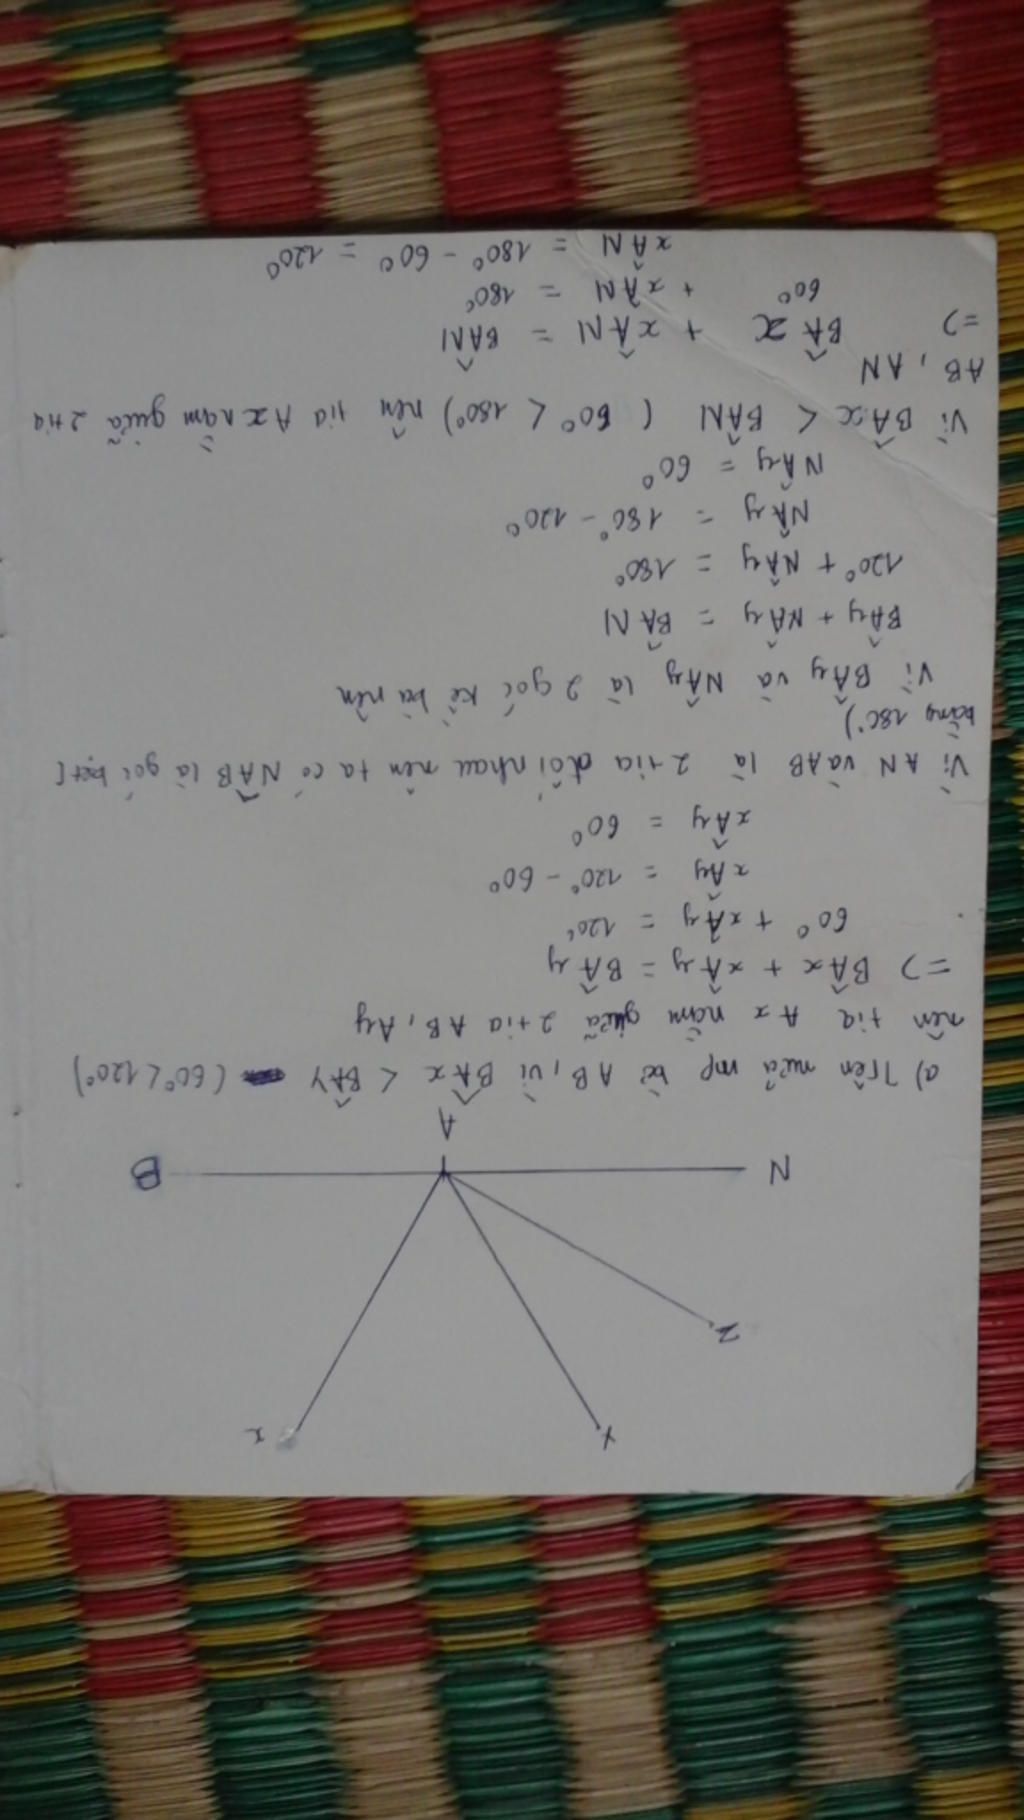 x
Y
Z
N
B
A
a) Trên nửa mp bờ AB, vì BÂx < BÂY (60° < 120°)
nên tia Ax nằm giữa 2 tia AB, Ay
=> BÂx + xÂy = BÂy
60° + xÂy = 120°
xÂy = 120° - 60°
xÂy = 60°
Vì AN và AB là 2 tia đối nhau nên ta có NÂB là góc bẹt (
bằng 180°)
Vì BÂy và NÂy là 2 góc kề bù nên
BÂy + NÂy = BÂN
120° + NÂy = 180°
NÂy = 180° - 120°
NÂy = 60°
Vì BÂx < BÂN (60° < 180°) nên tia Ax nằm giữa 2 tia
AB, AN
=> BÂx + xÂN = BÂN
60° + xÂN = 180°
xÂN = 180° - 60° = 120°